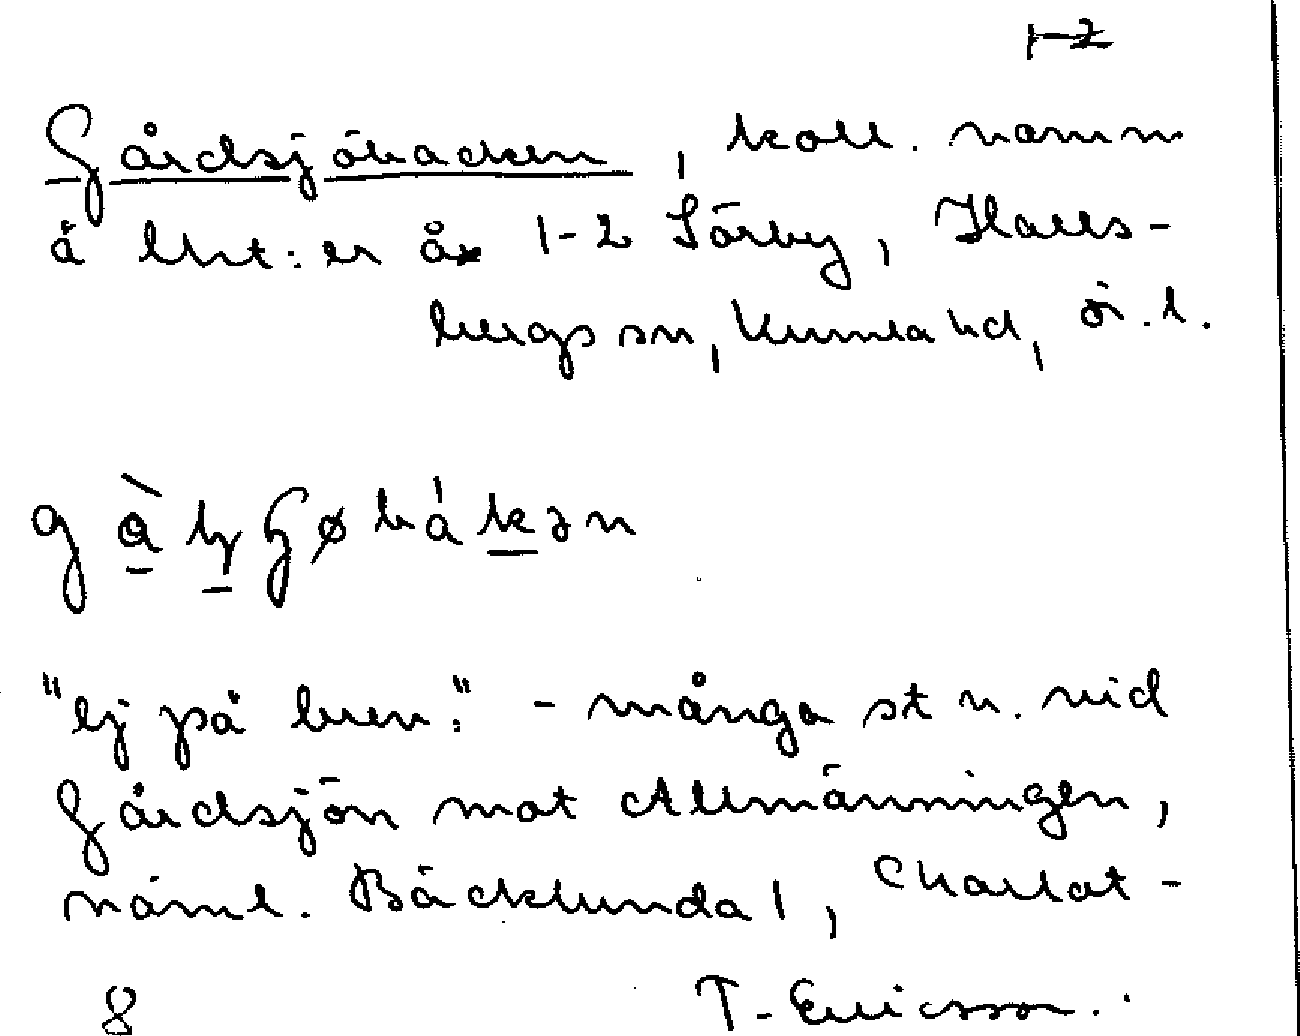 1-2
Gårdsjöbacken, koll. namn
å lht:er å 1-2 Sörby, Halls-
bergs sn, Kumla hd, ör. l.
"ej på ben." - många st n. vid
Gårdsjön mot Allmänningen,
näml. Bäcklunda 1, Charlot-
8 T. Ericsson.